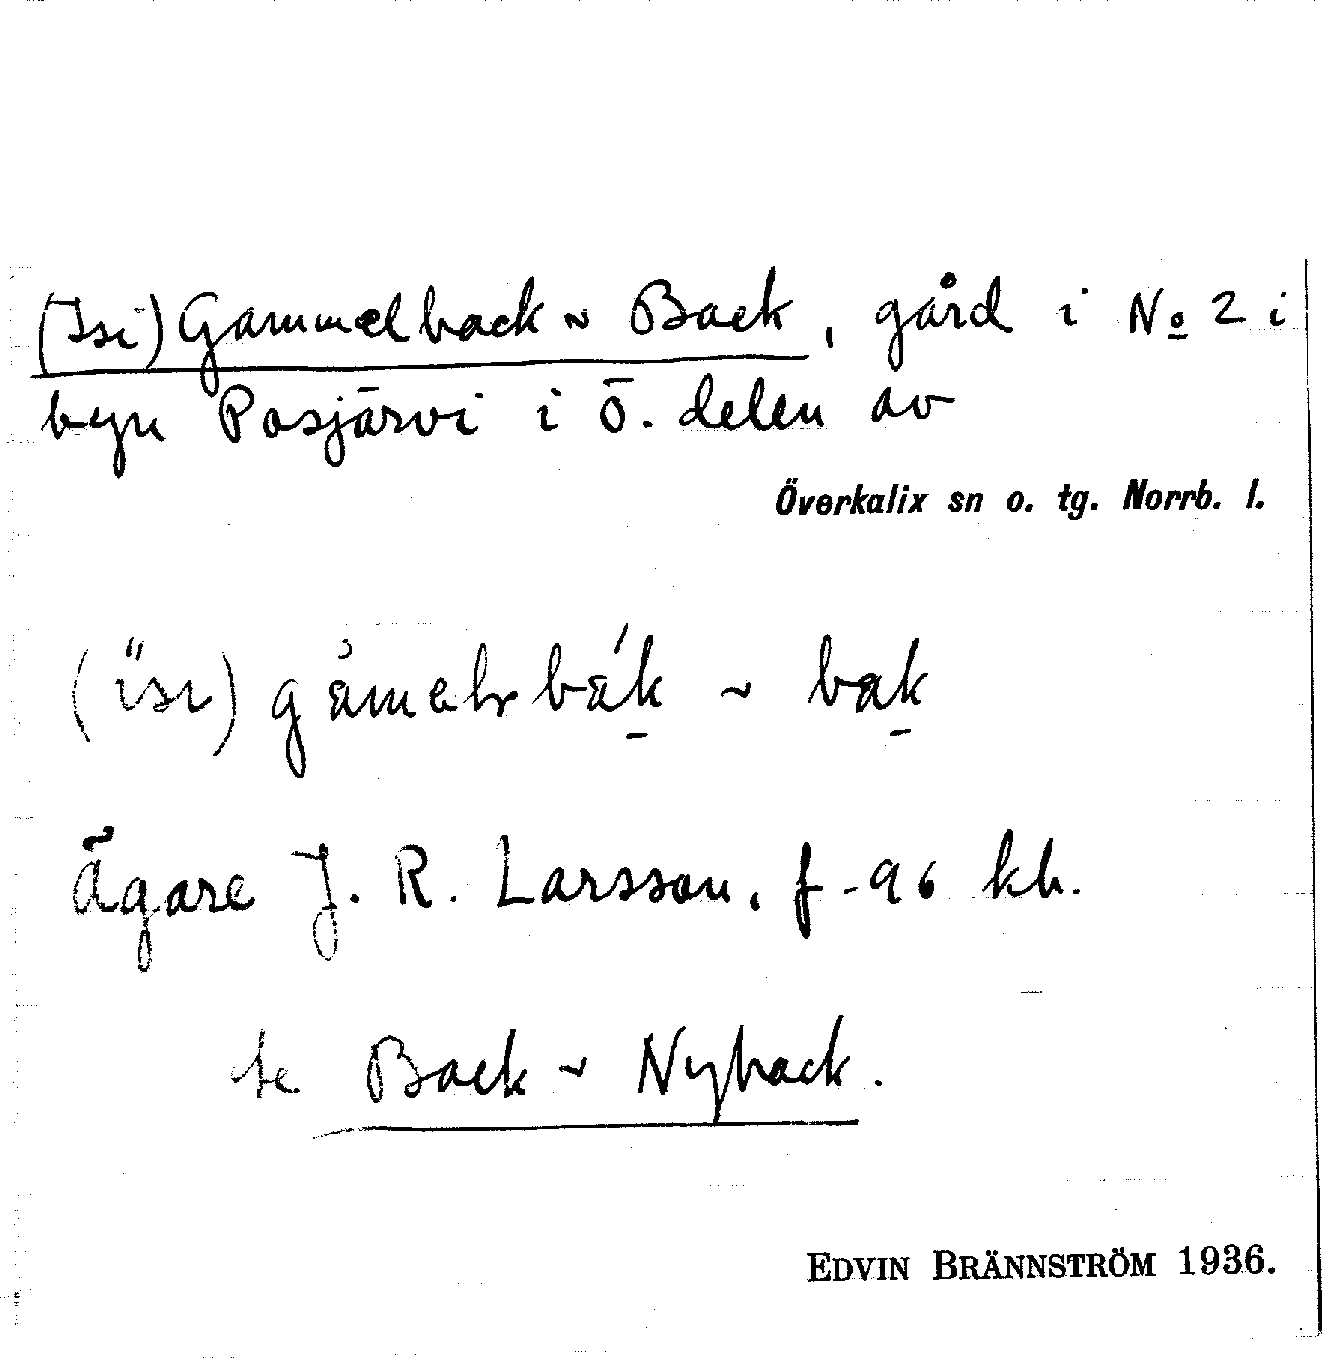 (Isi) Gammelback ~ Back, gård i No 2 i
byn Posjärvi i ö. delen av
Överkalix sn o. tg. Norrb. l.
~
Ägare J. R. Larsson, f -96 kh.
se Back ~ Nyback.
EDVIN BRÄNNSTRÖM 1936.